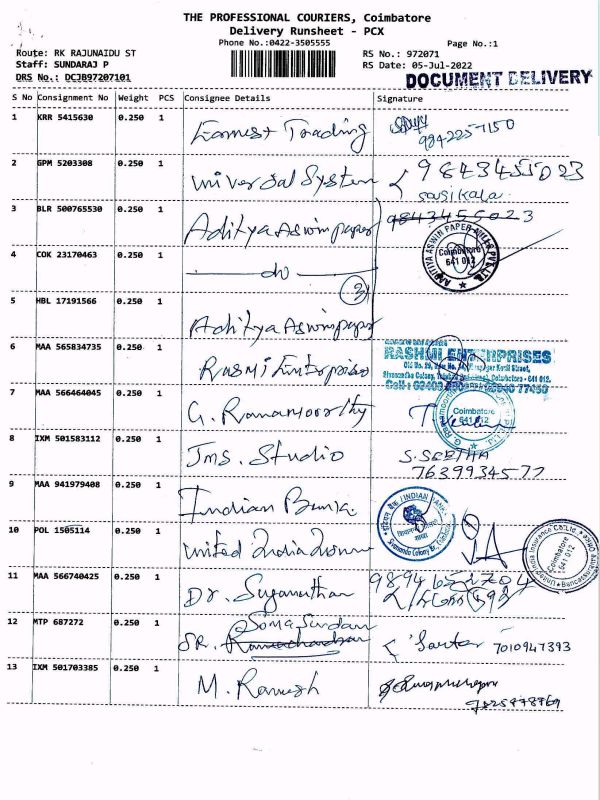 THE PROFESSIONAL COURIERS, Coimbatore
Delivery Runsheet - PCX
Phone No.:0422-3505555 Page No.:1
Route: RK RAJUNAIDU ST RS No.: 972071
Staff: SUNDARAJ P RS Date: 05-Jul-2022
DRS No.: DCJB97207101 DOCUMENT DELIVERY
S No Consignment No Weight PCS Consignee Details Signature
1 KRR 5415630 0.250 1 Earnest Trading 984225-7150
2 GPM 5203308 0.250 1 Universal System 9843455023
sasikala
3 BLR 500765530 0.250 1 Aditya Aswin paper 9843455023
ADITYA ASWIN PAPER
Coimbatore
641 012
4 COK 23170463 0.250 1 do
3
5 HBL 17191566 0.250 1 Aditya Aswin paper
6 MAA 565834735 0.250 1 Rasmi Enterprises
RASHMI ENTERPRISES
7 MAA 566464045 0.250 1 G. Ramamoorthy
Coimbatore
641 012
8 IXM 501583112 0.250 1 Jms. Studio S. SEETHA
7639934577
9 MAA 941979408 0.250 1 Indian Bank
INDIAN BANK
10 POL 1505114 0.250 1 United India Insurance
Coimbatore
641 012
11 MAA 566740425 0.250 1 Dr. Suganuthan 9894651704
12 MTP 687272 0.250 1 SR. Soma Sundaram 7010947393
13 IXM 501703385 0.250 1 M. Ramesh